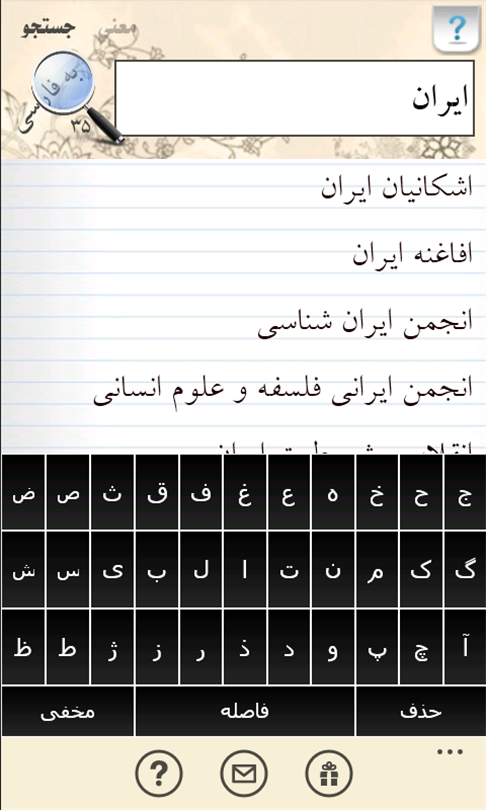 جستجو معنی
?
به فارسی
۳۵
ایران
اشکانیان ایران
افاغنه ایران
انجمن ایران شناسی
انجمن ایرانی فلسفه و علوم انسانی
ض ص ث ق ف غ ع ه خ ح ج
ش س ی ب ل ا ت ن م ک گ
ظ ط ژ ز ر ذ د و پ چ آ
مخفی فاصله حذف
?